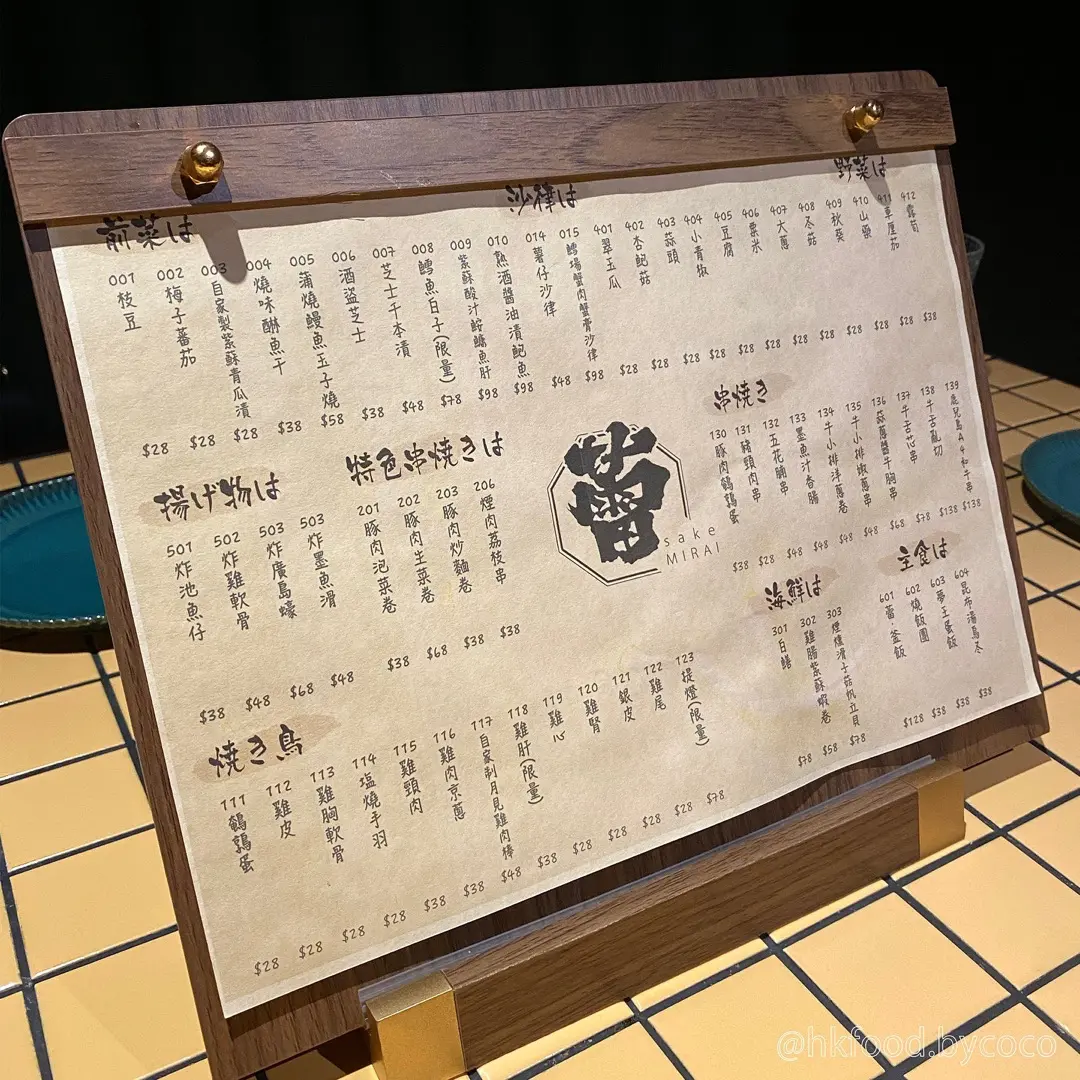 前菜は
001 枝豆 $28
002 梅子蕃茄 $28
003 自家製紫蘇青瓜漬 $28
004 燒味醂魚干 $38
005 蒲燒鰻魚玉子燒 $58
006 酒盜芝士 $38
007 芝士千本漬 $48
008 鱈魚白子(限量) $78
009 紫蘇酸汁鮟鱇魚肝 $98
010 熟酒醬油漬鮑魚 $98
沙律は
014 薯仔沙律 $48
015 鱈場蟹肉蟹膏沙律 $98
野菜は
401 翠玉瓜 $28
402 杏鮑菇 $28
403 蒜頭 $28
404 小青椒 $28
405 豆腐 $28
406 粟米 $28
407 大蔥 $28
408 冬菇 $28
409 秋葵 $28
410 山藥 $28
411 車厘茄 $28
412 露筍 $38
揚げ物は
501 炸池魚仔 $38
502 炸雞軟骨 $48
503 炸廣島蠔 $68
503 炸墨魚滑 $48
特色串焼きは
201 豚肉泡菜卷 $38
202 豚肉生菜卷 $68
203 豚肉炒麵卷 $38
206 煙肉荔枝串 $38
蕾
sake
MIRAI
串焼き
130 豚肉鵪鶉蛋 $38
131 豬頸肉串 $28
132 五花腩串 $48
133 墨魚汁香腸 $48
134 牛小排洋蔥卷 $48
135 牛小排蝦蔥串 $48
136 蒜蔥醬牛胸串 $68
137 牛舌芯串 $78
138 牛舌亂切 $138
139 鹿兒島A4和牛串 $138
焼き鳥
111 鵪鶉蛋 $28
112 雞皮 $28
113 雞胸軟骨 $28
114 塩燒手羽 $28
115 雞頸肉 $38
116 雞肉京蔥 $38
117 自家制月見雞肉棒 $48
118 雞肝(限量) $38
119 雞心 $28
120 雞腎 $28
121 銀皮 $28
122 雞尾 $28
123 提燈(限量) $78
海鮮は
301 白鱔 $78
302 雞腸紫蘇蝦卷 $58
303 煙燻滑子菇帆立貝 $78
主食は
601 蕾·釜飯 $128
602 燒飯團 $38
603 夢王蛋飯 $38
604 昆布湯烏冬 $38
@hkfood.bycoco